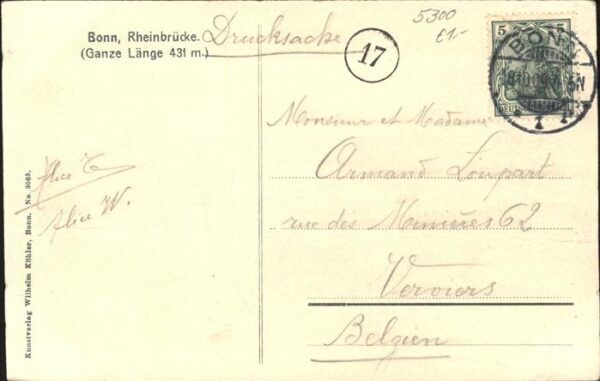 Bonn, Rheinbrücke.
(Ganze Länge 431 m.)
Drucksache
17
5300
£1.-
5 5
BONN
1
DEUTSCHES
Monsieur et Madame
Armand Loupart
rue des Minières 62
Verviers
Belgien
Alice T.
Alice W.
Kunstverlag Wilhelm Köhler, Bonn. No. 3063.